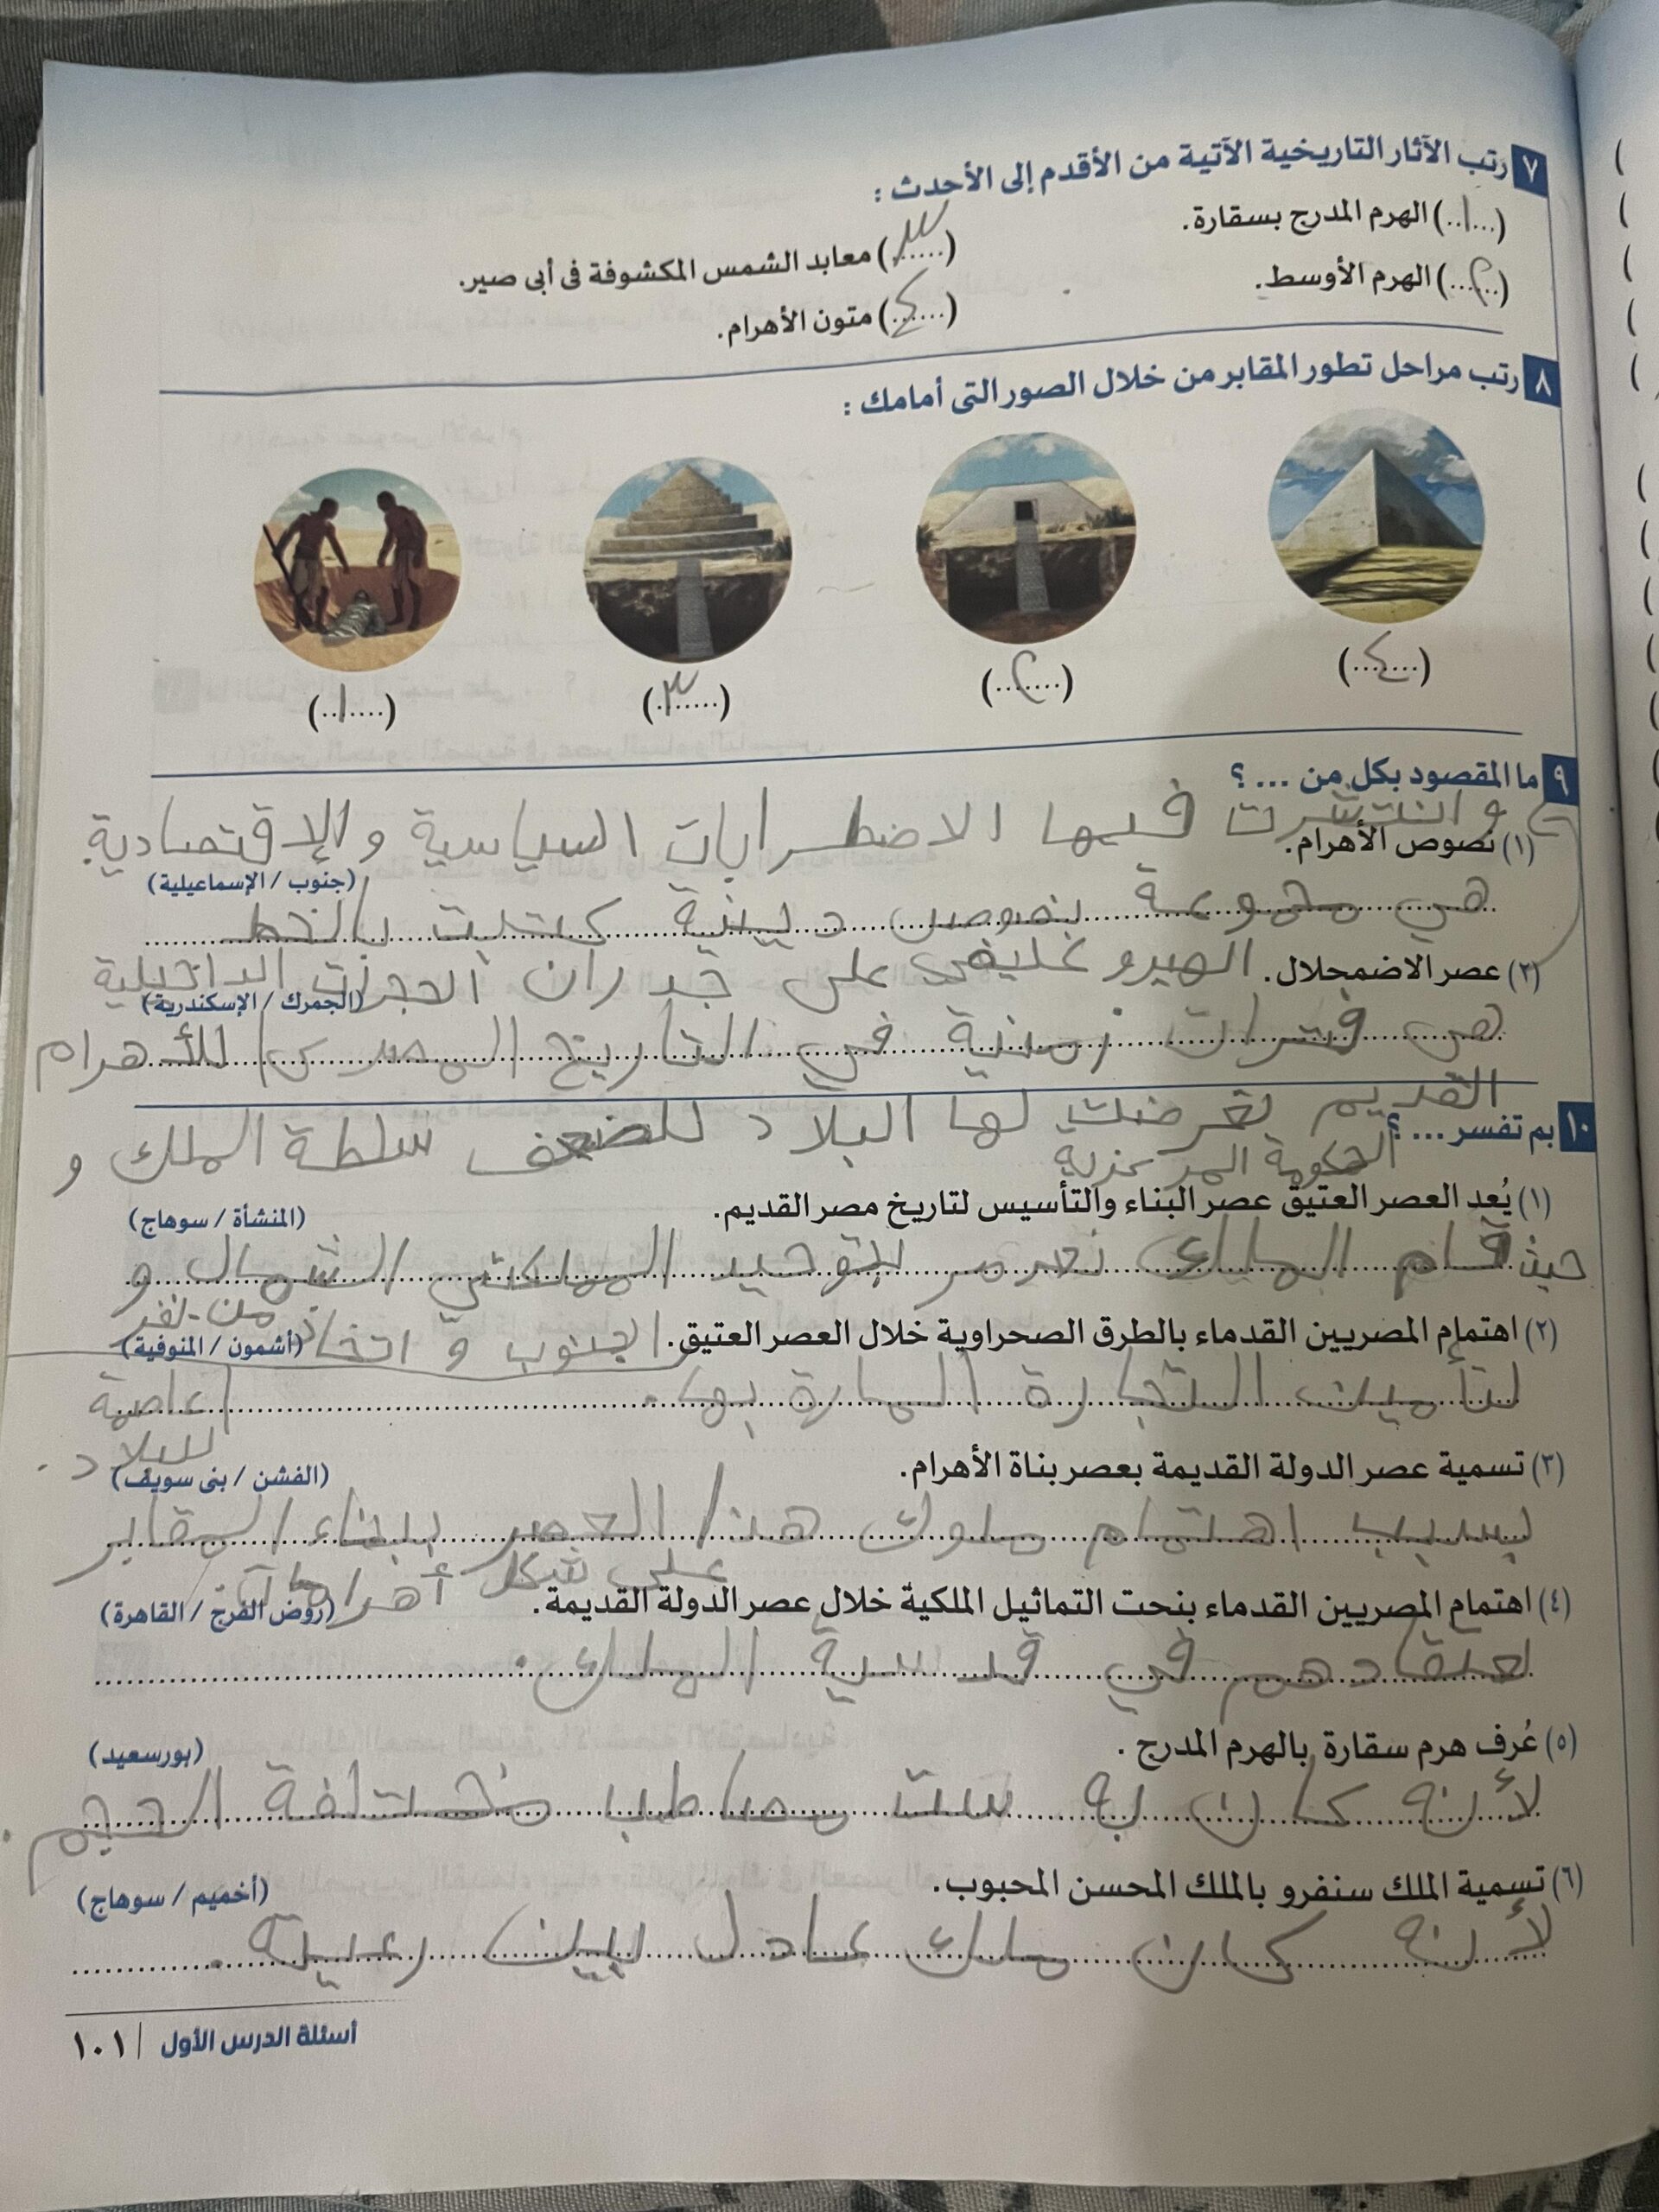 ٧ رتب الآثار التاريخية الآتية من الأقدم إلى الأحدث :
(١) الهرم المدرج بسقارة.
(٣) معابد الشمس المكشوفة فى أبى صير.
(٢) الهرم الأوسط.
(٤) متون الأهرام.
٨ رتب مراحل تطور المقابر من خلال الصور التى أمامك :
(٤) (٢) (٣) (١)
٩ ما المقصود بكل من ... ؟
و انتشرت فيها الاضطرابات السياسية و الإقتصادية
(١) نصوص الأهرام. (جنوب / الإسماعيلية)
هي مجموعة نصوص دينية كتبت بالخط
(٢) عصر الاضمحلال. (الجمرك / الإسكندرية)
الهيروغليفى على جدران الحجرات الداخلية
هى فترات زمنية في التاريخ المصرى للأهرام
القديم تعرضت لها البلاد لضعف سلطة الملك و
١٠ بم تفسر ... ؟
الحكومة المركزية
(١) يُعد العصر العتيق عصر البناء والتأسيس لتاريخ مصر القديم. (المنشأة / سوهاج)
حيث قام الملك نعرمر بتوحيد المملكتي الشمال و
(٢) اهتمام المصريين القدماء بالطرق الصحراوية خلال العصر العتيق. (أشمون / المنوفية)
الجنوب و اتخاذ من نفر
لتأمين التجارة المارة بها. عاصمة
للبلاد.
(٣) تسمية عصر الدولة القديمة بعصر بناة الأهرام. (الفشن / بنى سويف)
بسبب اهتمام ملوك هذا العصر ببناء المقابر
على شكل أهرامات
(٤) اهتمام المصريين القدماء بنحت التماثيل الملكية خلال عصر الدولة القديمة. (روض الفرج / القاهرة)
لعتقادهم في قدسية الملك.
(٥) عُرف هرم سقارة بالهرم المدرج . (بورسعيد)
لأنه كان به ست مصاطب مختلفة الحجم.
(٦) تسمية الملك سنفرو بالملك المحسن المحبوب. (أخميم / سوهاج)
لأنه كان ملك عادل بين رعيته.
أسئلة الدرس الأول / ١٠١